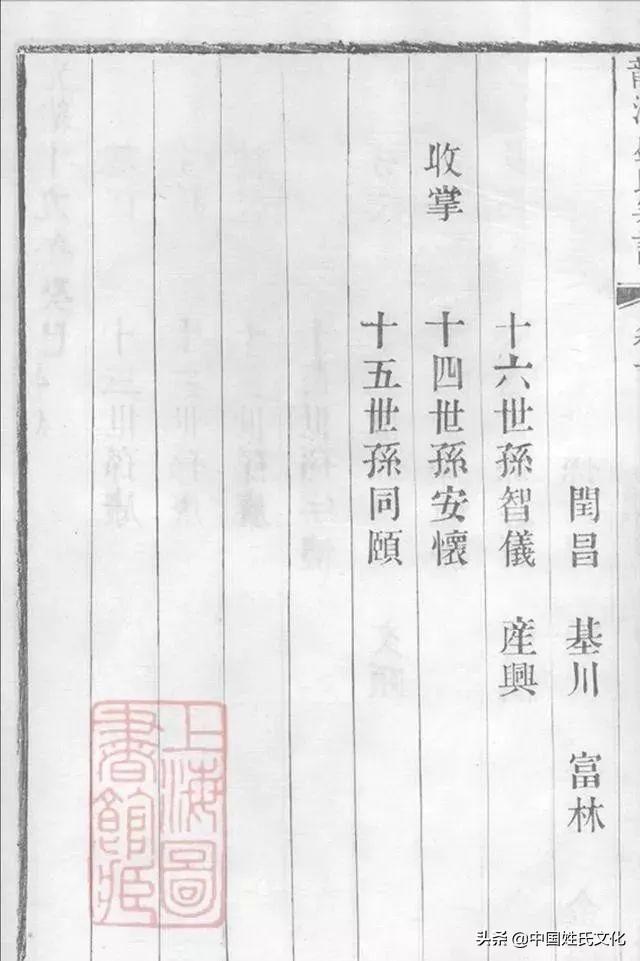 閏昌 基川 富林
十六世孫智儀 產興
收掌 十四世孫安懷
十五世孫同頤
上海圖書館藏
头条 @中国姓氏文化